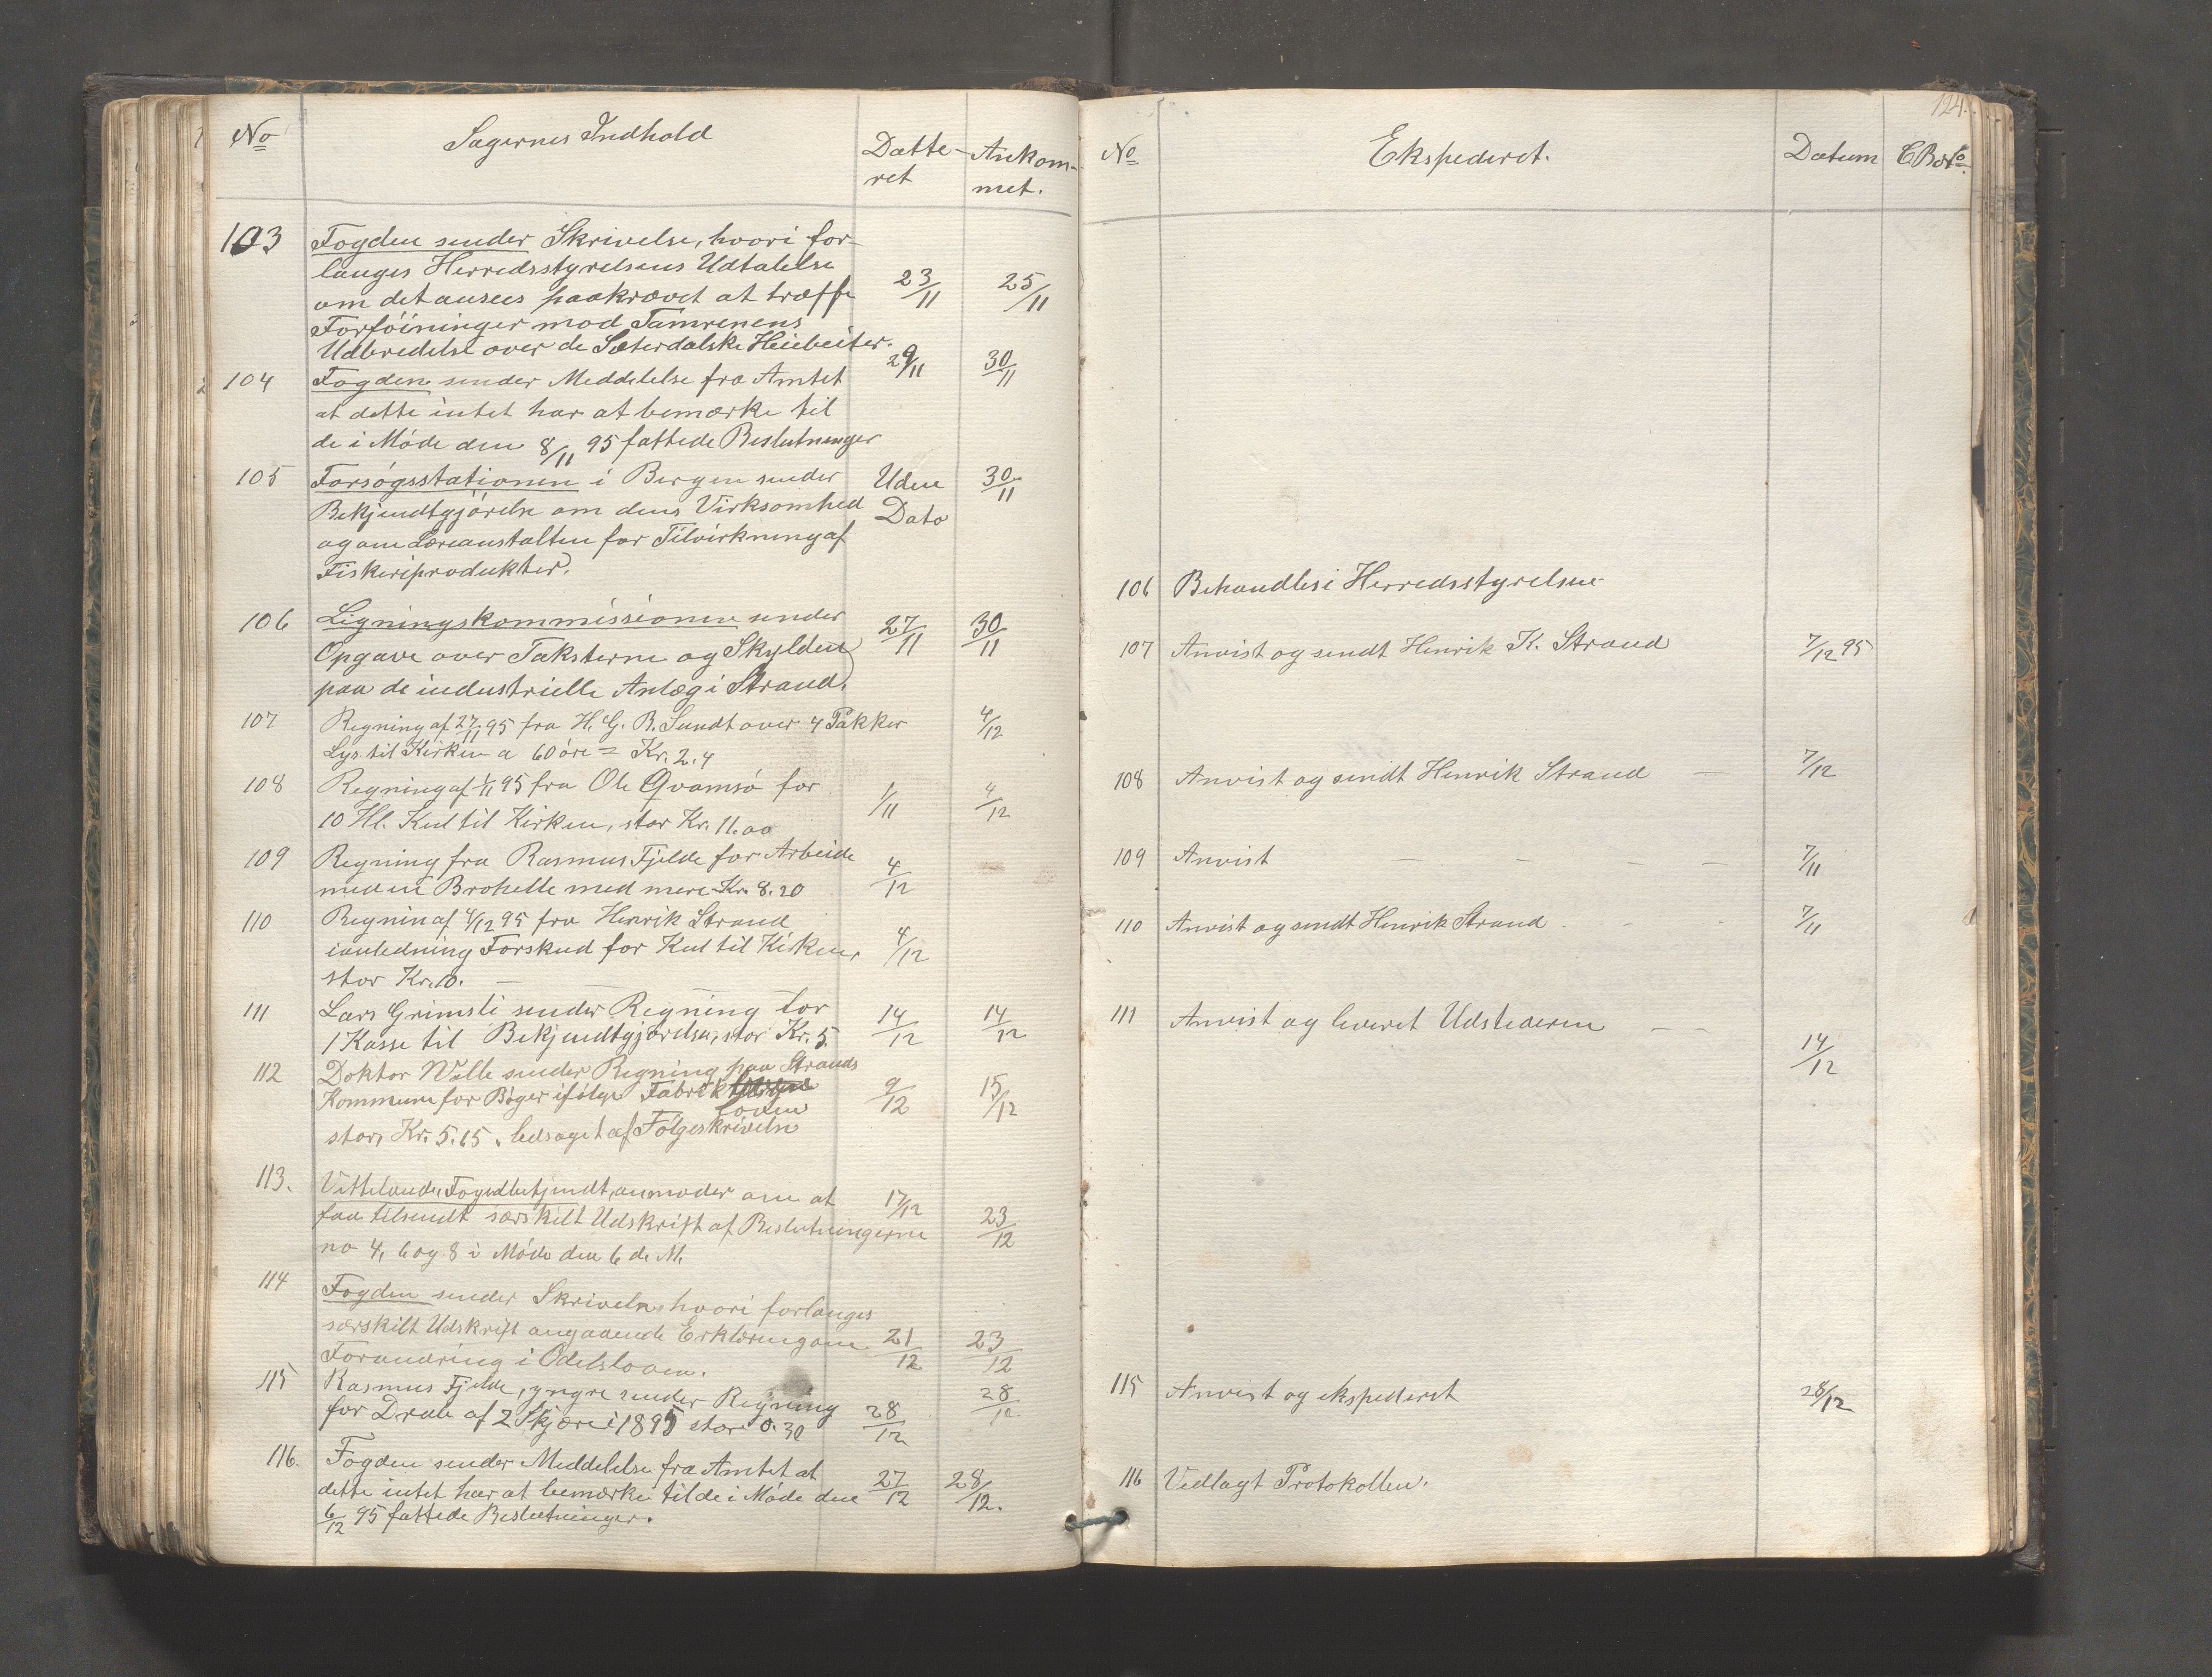 No Sagernes Indhold Datte- Ankom-
ret met.
103 Fogden sender Skrivelse, hvori for-
langes Herredsstyrelsens Udtalelse
om det ansees paakrævet at træffe 23/11 25/11
Forföininger mod Tamrenens
Udbredelse over de Sæterdalske Heiebeiter.
104 Fogden sender Meddelelse fra Amtet 29/11 30/11
at dette intet har at bemærke til
de i Möde den 8/11 95 fattede Beslutninger
105 Forsögsstationen i Bergen sender Uden 30/11
Bekjendtgjörelse om dens Virksomhed Dato
og om Læreanstalten for Tilvirkning af
Fiskeriprodukter.
106 Ligningskommissionen sender 27/11 30/11
Opgave over Taksterne og Skylden
paa de industrielle Anlæg i Strand.
107 Regning af 27/11 95 fra H. G. B. Sundt over 4 Pakker 4/12
Lys til Kirken a 60 öre = Kr. 2.4
108 Regning af 1/11 95 fra Ole Qvamsö for 1/11 4/12
10 Hl. Kul til Kirken, stor Kr. 11.00
109 Regning fra Rasmus Fjelde for Arbeide 4/12
med en Brohelle med mere Kr. 8.20
110 Regnin af 4/12 95 fra Henrik Strand
ianledning Forskud for Kul til Kirken, 4/12
stor Kr. 10.
111 Lars Grimsli sender Regning for 14/12 14/12
1 Kasse til Bekjendtgjørelser, stor Kr. 5.
112 Doktor Wille sender Regning paa Strands
Kommune for Böger ifölge Fabrik 9/12 15/12
loven
stor, Kr. 5.15, ledsaget af Fölgeskrivelse
113. Fogedbetjendt, anmoder om at 17/12
faa tilsendt særskilt Udskrift af Beslutningerne 23/12
no 4, 6 og 8 i Möde den 6 d. M.
114 Fogden sender Skrivelse, hvori forlanges
særskilt Udskrift angaaende Erklæring om 21/12 23/12
Forandring i Odelsloven.
115 Rasmus Fjelde, yngre sender Regning 28/12
for Drab af 2 Skjære i 1895 stor 0.30 28/12
116. Fogden sender Meddelelse fra Amtet at
dette intet har at bemærke til de i Möde den 27/12 28/12.
6/12 95 fattede Beslutninger.
124.
No Ekspederet. Datum
106 Behandles i Herredsstyrelsen
107 Anvist og sendt Henrik K. Strand 7/12 95
108 Anvist og sendt Henrik Strand — 7/12
109 Anvist — — — — 7/11
110 Anvist og sendt Henrik Strand. - 7/11
111 Anvist og leveret Udstederen — — 14/12
115 Anvist og ekspederet 28/12
116 Vedlagt Protokollen.